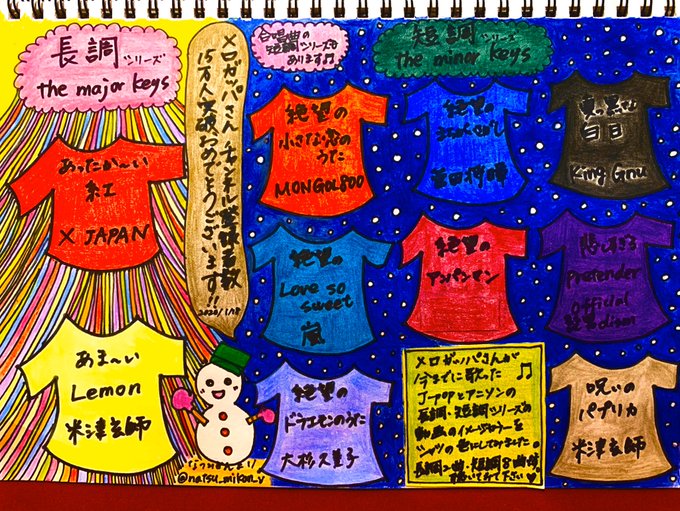 長調シリーズ
the major keys
メロガッパさん チャンネル登録者数
15万人突破おめでとうございます!!
2020/1/18
合唱曲の
短調シリーズも
あります♫
短調シリーズ
the minor keys
あったか〜い
紅
X JAPAN
あま〜い
Lemon
米津玄師
絶望の
小さな恋の
うた
MONGOL800
絶望の
菅田将暉
真っ黒な
白日
King Gnu
絶望の
Love so
sweet
嵐
絶望の
アンパンマン
悲しすぎる
Pretender
Official
髭男dism
絶望の
ドラえもんのうた
大杉久美子
メロガッパさんが
今までに歌った♫
J-POPとアニソンの
長調、短調シリーズの
動画のイメージカラーを
シャツの色にしてみました。
長調2曲・短調8曲
聴いてみて下さい♥
呪いの
パプリカ
米津玄師
@natsu_mikan_v